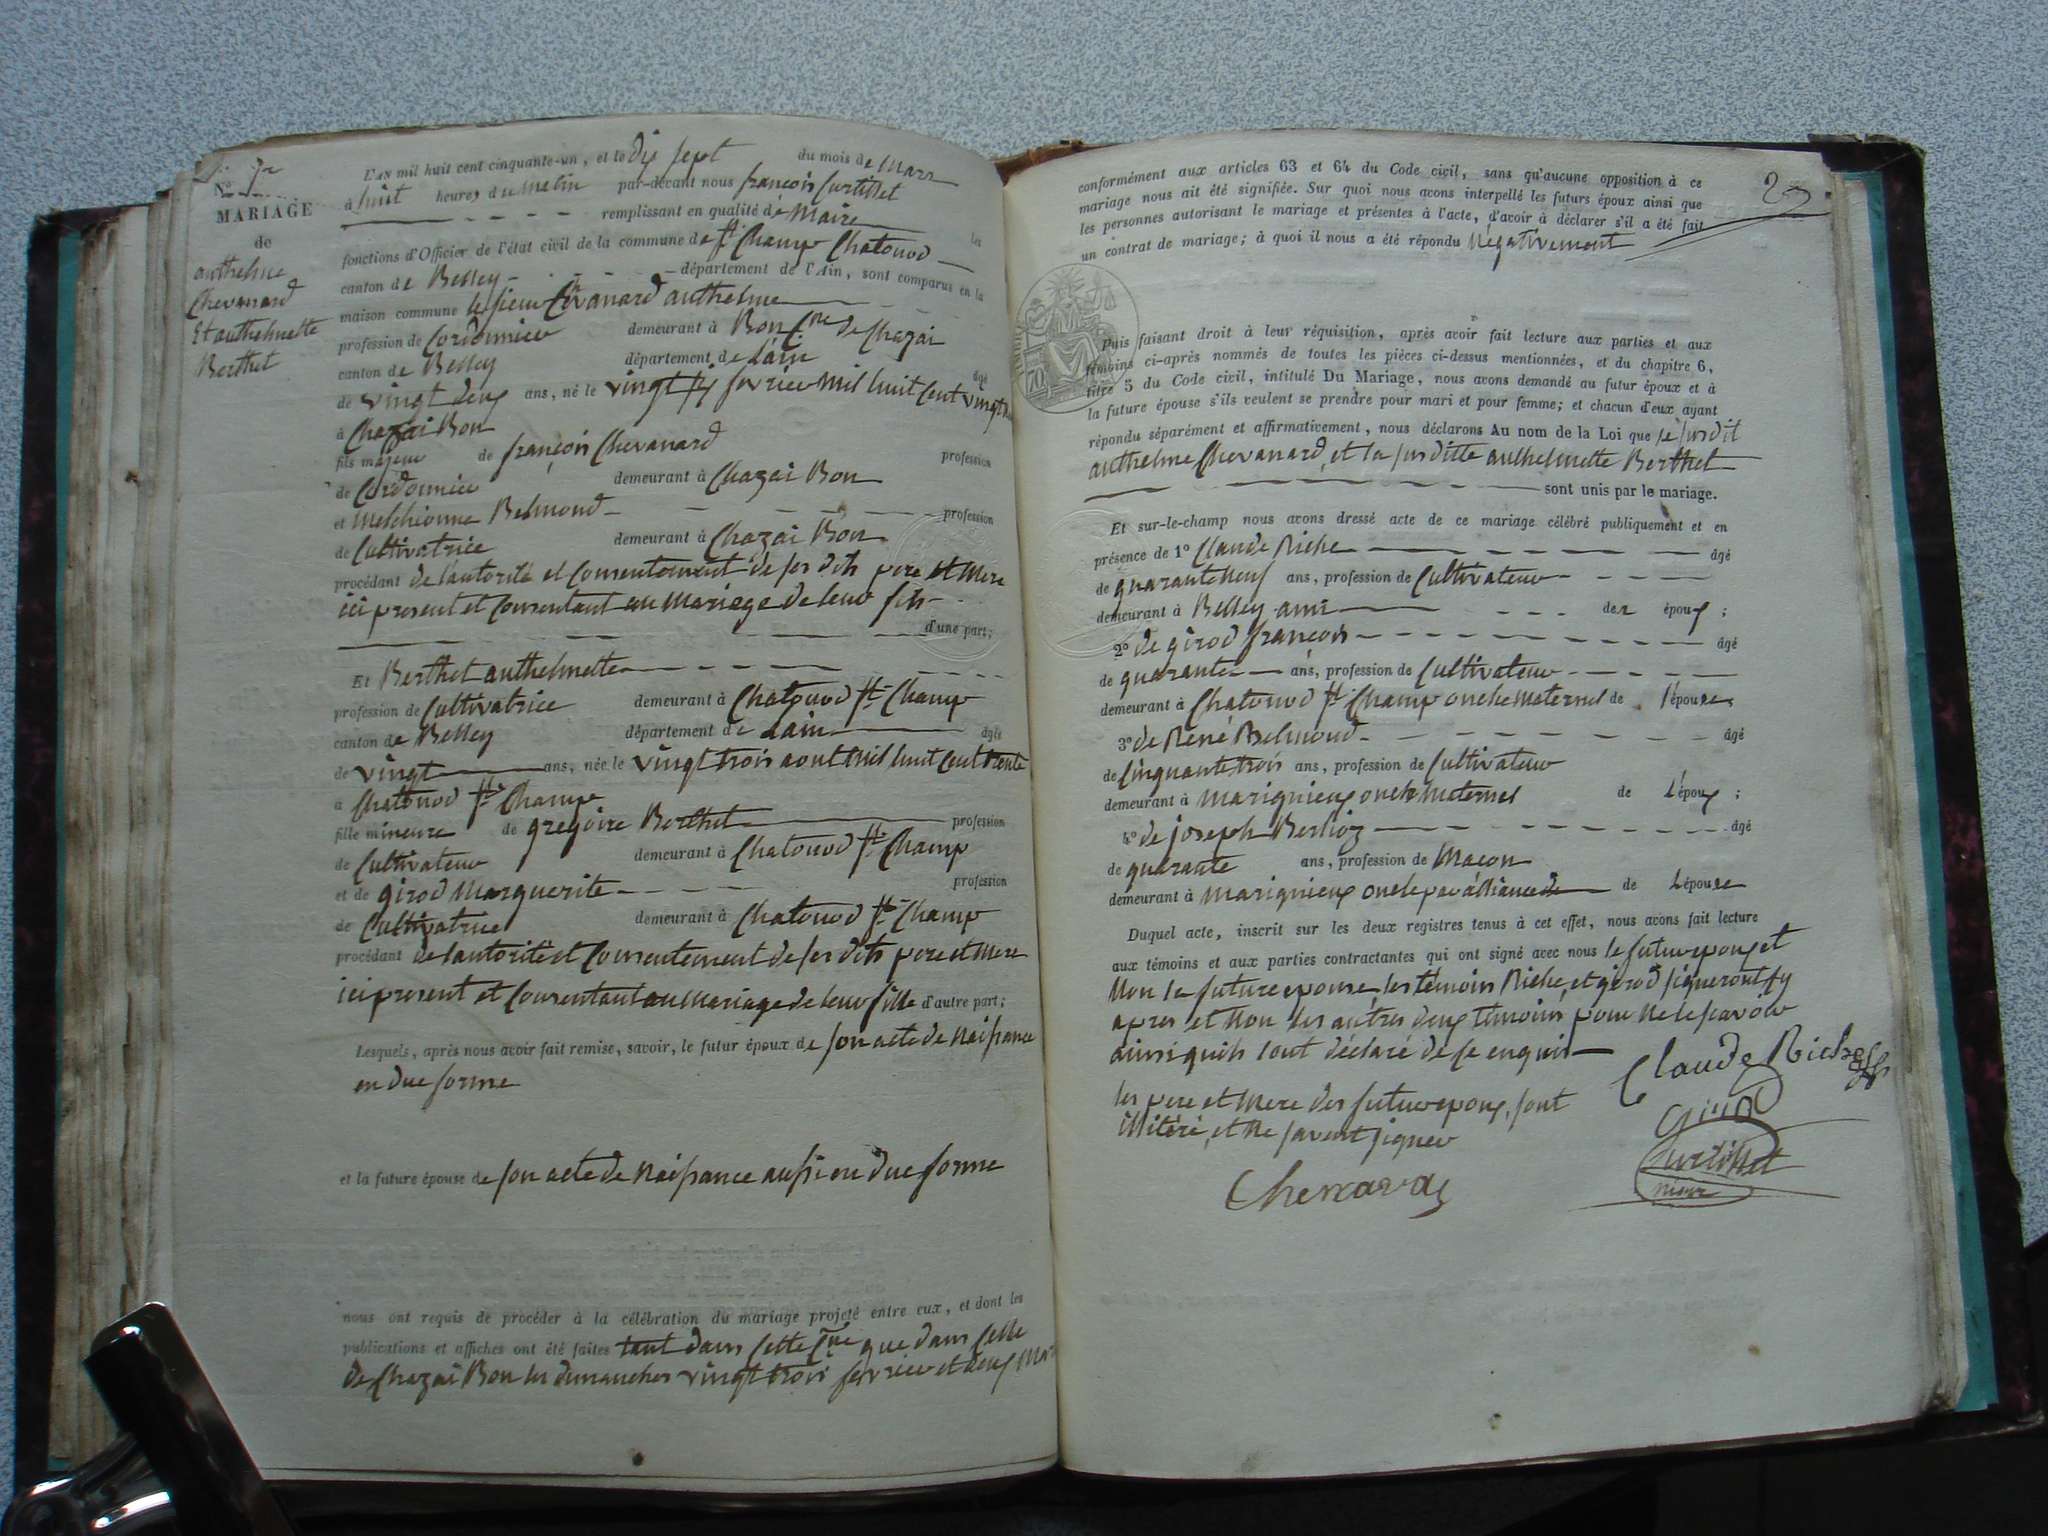 N°
MARIAGE
de
anthelme
Chevanard
Et anthelmette
Berthet
L'AN mil huit cent cinquante-un, et le dix sept du mois de Mars
à huit heures du matin par-devant nous françois Curtillet
remplissant en qualité de Maire les
fonctions d'Officier de l'état civil de la commune de St. Champ Chatonod
canton de Belley département de l'Ain, sont comparus en la
maison commune le sieur Chevanard anthelme
profession de Cordonnier demeurant à Bon Cne de Chazai
canton de Belley département de Lain âgé
de vingt deux ans, né le vingt six fevrier mil huit Cent vingt
à Chazai Bon
fils majeur de françois Chevanard profession
de Cordonnier demeurant à Chazai Bon
et Melchionne Belmond profession
de Cultivatrice demeurant à Chazai Bon
procédant de l'autorité et Consentement de ses dits pere et Mere
ici present et Consentant au Mariage de leur fils
d'une part;
Et Berthet anthelmette
profession de Cultivatrice demeurant à Chatonod St. Champ
canton de Belley département de Lain âgée
de vingt ans, née le vingt trois aout Mil huit Cent trente
à Chatonod St. Champ
fille mineure de gregoire Berthet profession
de Cultivateur demeurant à Chatonod St. Champ
et de girod Marguerite profession
de Cultivatrice demeurant à Chatonod St. Champ
procédant de l'autorité et Consentement de ses dits pere et Mere
ici present et Consentant au Mariage de leur fille d'autre part;
Lesquels, après nous avoir fait remise, savoir, le futur époux de son acte de Naissance
en due forme
et la future épouse de son acte de Naissance aussi en due forme
nous ont requis de procéder à la célébration du mariage projeté entre eux, et dont les
publications et affiches ont été faites tant dans Cette Cne que dans Celle
de Chazai Bon les dimanches vingt trois fevrier et deux Mars
conformément aux articles 63 et 64 du Code civil, sans qu'aucune opposition à ce
mariage nous ait été signifiée. Sur quoi nous avons interpellé les futurs époux ainsi que
les personnes autorisant le mariage et présentes à l'acte, d'avoir à déclarer s'il a été fait
un contrat de mariage; à quoi il nous a été répondu Négativement
Puis faisant droit à leur réquisition, après avoir fait lecture aux parties et aux
témoins ci-après nommés de toutes les pièces ci-dessus mentionnées, et du chapitre 6,
titre 5 du Code civil, intitulé Du Mariage, nous avons demandé au futur époux et à
la future épouse s'ils veulent se prendre pour mari et pour femme; et chacun d'eux ayant
répondu séparément et affirmativement, nous déclarons Au nom de la Loi que le susdit
anthelme Chevanard, et la susditte anthelmette Berthet
sont unis par le mariage.
Et sur-le-champ nous avons dressé acte de ce mariage célébré publiquement et en
présence de 1° Claude Riche âgé
de quarante neuf ans, profession de Cultivateur
demeurant à Belley ami des époux;
2° de girod françois âgé
de quarante ans, profession de Cultivateur
demeurant à Chatonod St. Champ oncle Maternel de l'épouse
3° de René Belmond âgé
de Cinquante trois ans, profession de Cultivateur
demeurant à Marignieux oncle Maternel de L'époux;
4° de joseph Berlioz âgé
de quarante ans, profession de Maçon
demeurant à Marignieux oncle par alliance de de L'épouse
Duquel acte, inscrit sur les deux registres tenus à cet effet, nous avons fait lecture
aux témoins et aux parties contractantes qui ont signé avec nous le futur epoux et
Non la future epouse, les témoins Riche, et girod signeront Cy
apres et Non les autres deux témoins pour Ne le savoir
ainsi quils lont déclaré de Ce enquis
les pere et Mere des futur epoux, sont
illitéré, et Ne savent signer
Claude Riche
Girod
Curtillet
maire